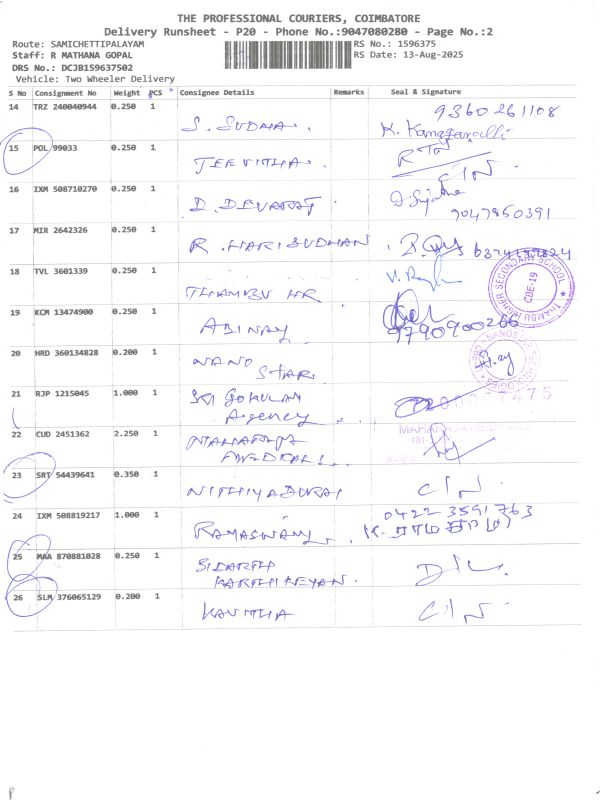 THE PROFESSIONAL COURIERS, COIMBATORE
Delivery Runsheet - P20 - Phone No.:9047080280 - Page No.:2
Route: SAMICHETTIPALAYAM RS No.: 1596375
Staff: R MATHANA GOPAL RS Date: 13-Aug-2025
DRS No.: DCJB159637502
Vehicle: Two Wheeler Delivery
S No Consignment No Weight PCS Consignee Details Remarks Seal & Signature
14 TRZ 240040944 0.250 1 S. SUDHA. 9360261108
15 POL 99033 0.250 1 JEEVITHA. RTN
16 IXM 508710270 0.250 1 D. DEVARAJ 9047850391
17 MIR 2642326 0.250 1 R. HARISUDHAN.
18 TVL 3601339 0.250 1 THAMBU HR.
THAMBU HIGHER SECONDARY SCHOOL
CBE-19
19 KCM 13474900 0.250 1 ABINAY 9790900266
20 HRD 360134828 0.200 1 NANO
STAR
21 RJP 1215045 1.000 1 SRI GOKULAN
Agency
22 CUD 2451362 2.250 1 MAHARAJA
MEDICALS.
23 SRT 54439641 0.350 1 NITHIYADURAI C/N.
24 IXM 508819217 1.000 1 RAMASWAMY. 0422 3591763
25 MAA 870881028 0.250 1 SIDARTH
KARTHIKEYAN. D/L.
26 SLM 376065129 0.200 1 KAVITHA C/N